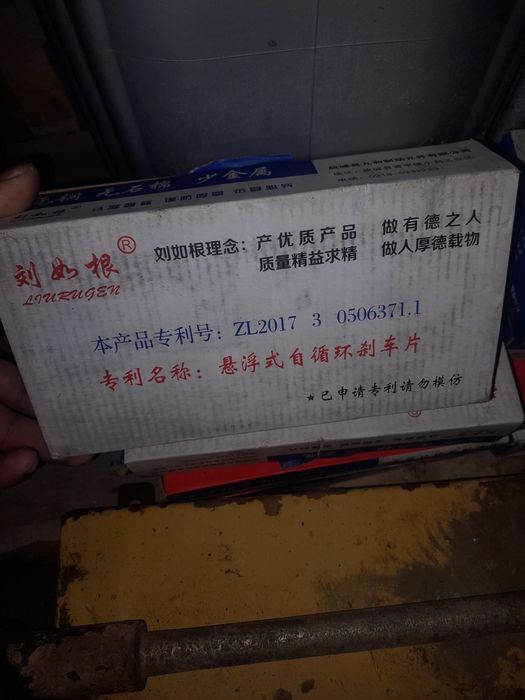 少金属
刘如根®
LIURUGEN
刘如根理念：产优质产品 做有德之人
质量精益求精 做人厚德载物
本产品专利号：ZL2017 3 0506371.1
专利名称：悬浮式自循环刹车片
★已申请专利请勿模仿